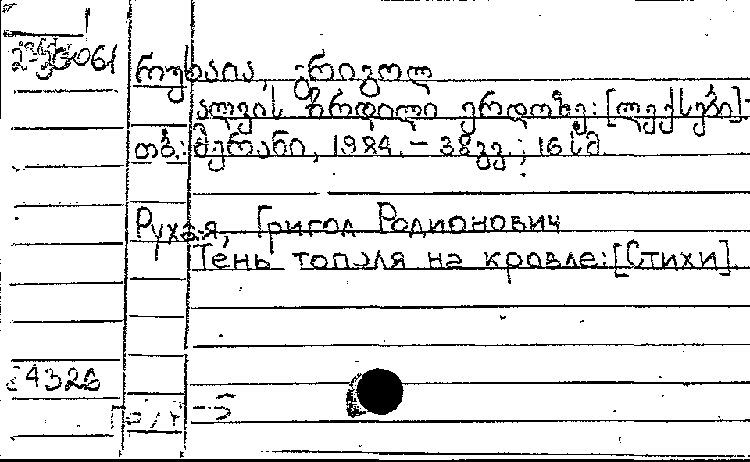 რუხაია, გრიგოლ
ალვის ჩრდილი ერდოზე: [ლექსები].-
თბ.: მერანი, 1984. – 38 გვ.; 16 სმ.
Рухая, Григол Родионович
Тень тополя на кровле: [Стихи].
4326